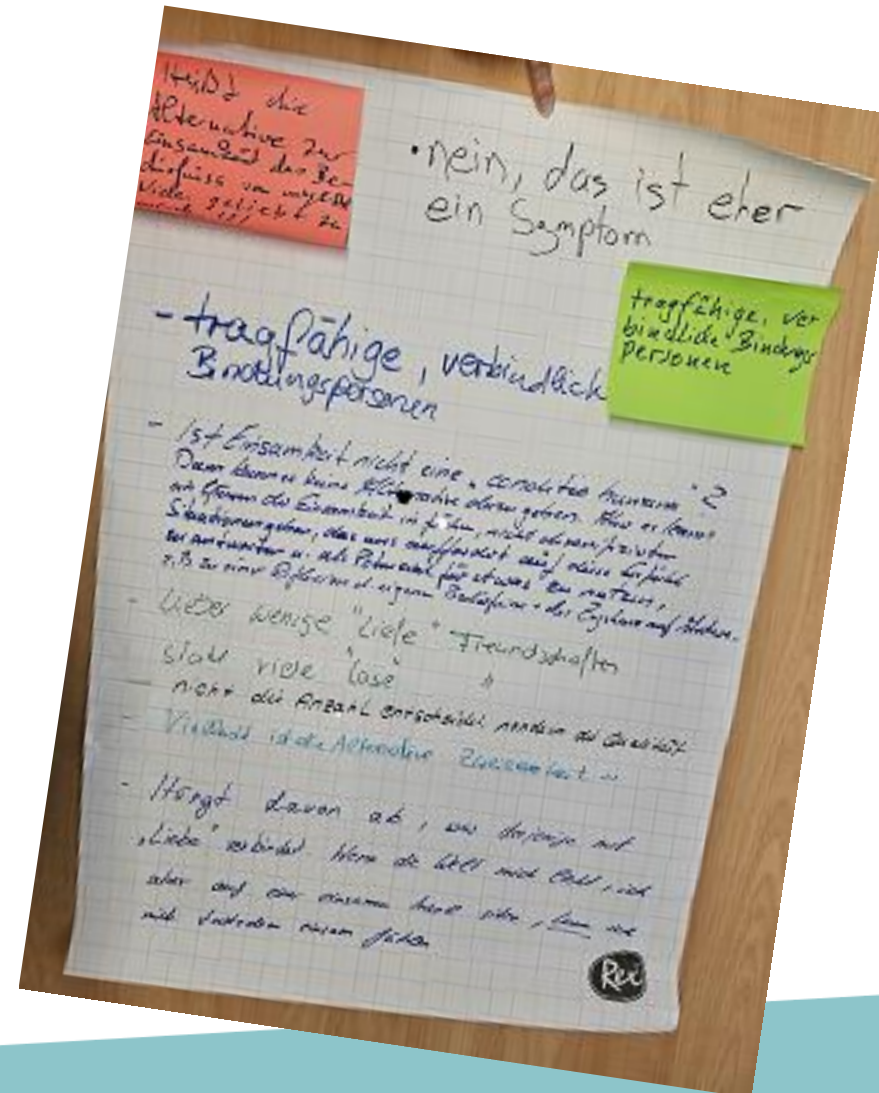 Heißt die
Alternative zur
Einsamkeit das Be-
dürfniss von
viele geliebt zu
• nein, das ist eher
ein Symptom
tragfähige, ver
bindliche Bindungs
personen
- tragfähige, verbindlich
Bindungspersonen
- Ist Einsamkeit nicht eine "conditio humana"?
Dann kann es keine Alternative geben. Aber es
die Einsamkeit zu fühlen, nicht
Situationen geben, das uns auffordert auf diese Gefühle
zu antworten u. als Potenzial für etwas zu nutzen,
z.B. zu einer Reflexion d. eigenen Bedürfnisse
- Lieber wenige "tiefe" Freundschaften
statt viele "lose" "
nicht die Anzahl entscheidet sondern die Qualität
- Vielleicht ist die Alternative Zweisamkeit
- Hängt davon ab, was derjenige mit
"Liebe" verbindet. Wenn die Welt mich liebt, ich
aber auf einer einsamen Insel sitze, kann ich
mich trotzdem einsam fühlen.
Rei